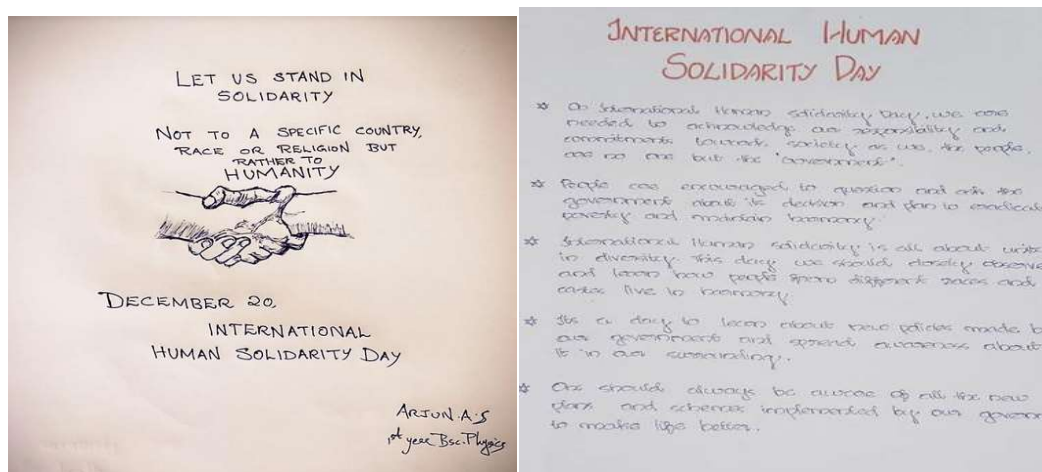 LET US STAND IN
SOLIDARITY
NOT TO A SPECIFIC COUNTRY,
RACE OR RELIGION BUT
RATHER TO
HUMANITY
DECEMBER 20,
INTERNATIONAL
HUMAN SOLIDARITY DAY
ARJUN.A.S
1st year Bsc.Physics
INTERNATIONAL HUMAN
SOLIDARITY DAY
On International Human solidarity Day, we are
needed to acknowledge our responsibility and
commitments towards society as we, the people,
are no one but the "Government".
People are encouraged to question and ask the
government about its decision and plan to eradicate
poverty and maintain harmony.
International Human solidarity is all about
in diversity. This day we should closely observe
and learn how people from different races and
castes live in harmony.
Its a day to learn about new policies made
our government and spread awareness about
it in our surrounding.
One should always be aware of all the new
plans and schemes implemented by our
to make life better.